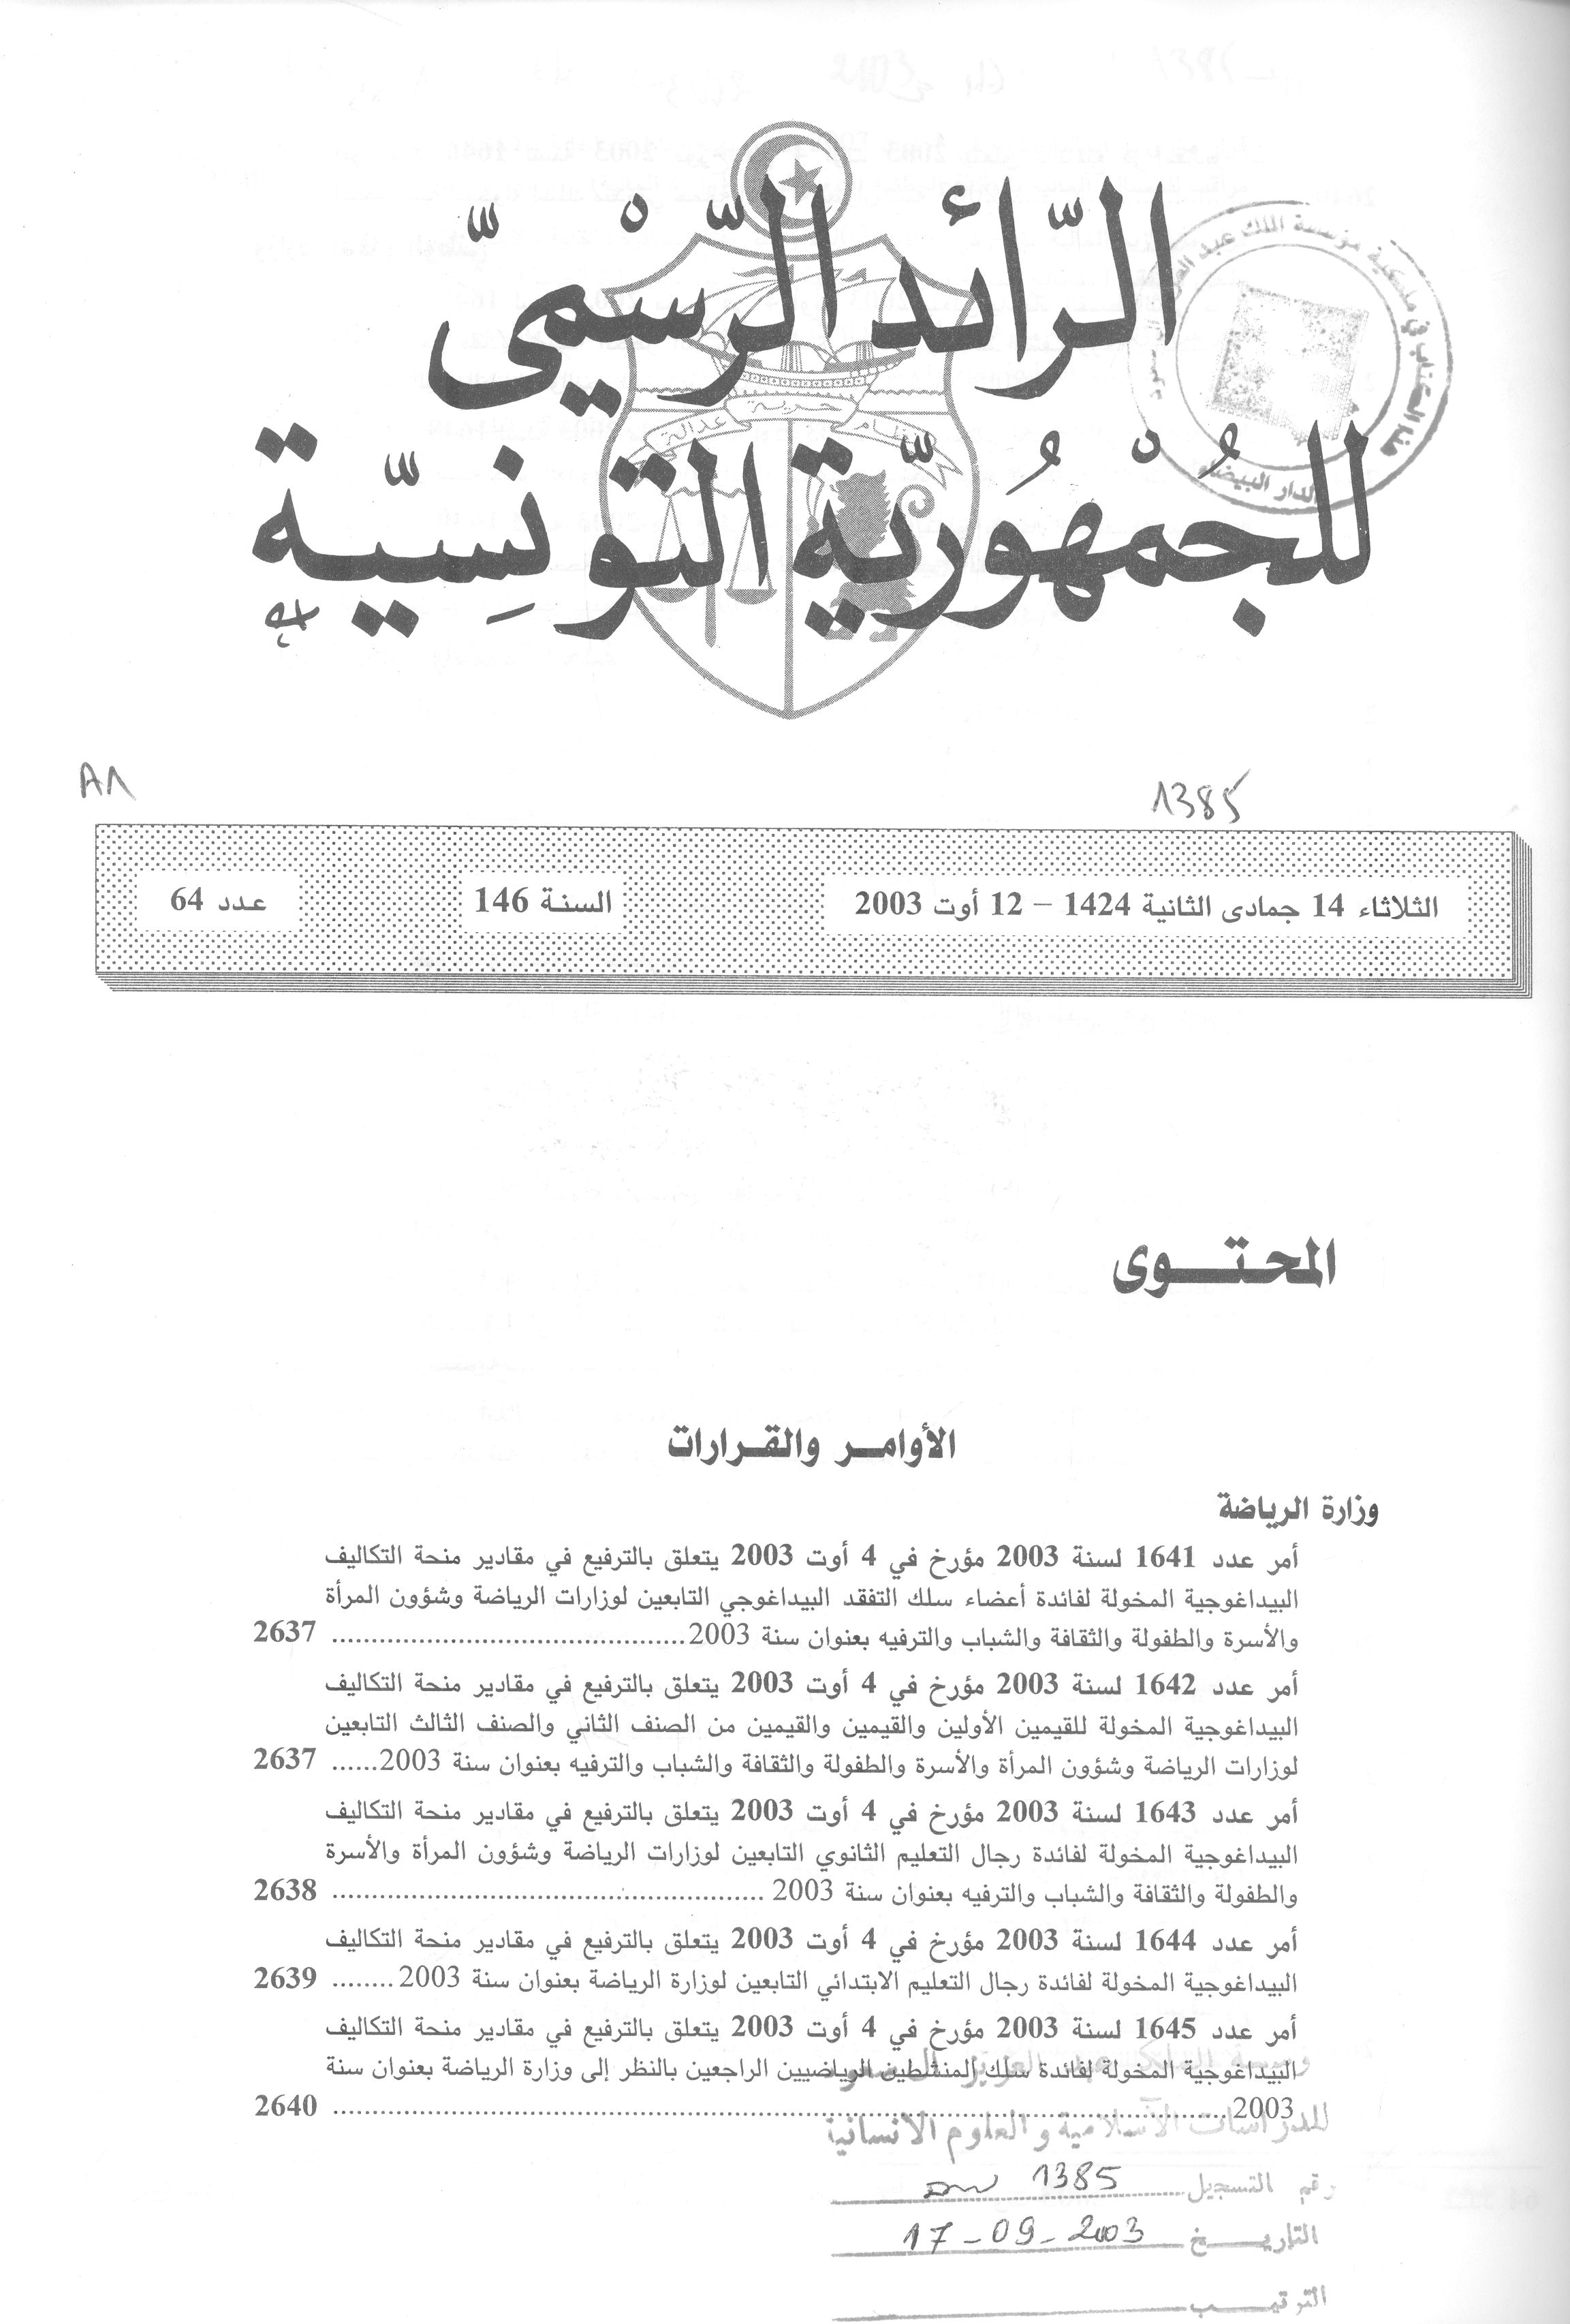 الرّائد الرّسْمِيّ
للجُمْهُوريّة التّونِسيّة
نظام حرية عدالة
هذا الكتاب في ملكية مؤسسة الملك عبد العزيز آل سعود
الدار البيضاء
A1
1385
الثلاثاء 14 جمادى الثانية 1424 – 12 أوت 2003
السنة 146
عدد 64
المحتوى
الأوامر والقرارات
وزارة الرياضة
أمر عدد 1641 لسنة 2003 مؤرخ في 4 أوت 2003 يتعلق بالترفيع في مقادير منحة التكاليف
البيداغوجية المخولة لفائدة أعضاء سلك التفقد البيداغوجي التابعين لوزارات الرياضة وشؤون المرأة
والأسرة والطفولة والثقافة والشباب والترفيه بعنوان سنة 2003 ............................................ 2637
أمر عدد 1642 لسنة 2003 مؤرخ في 4 أوت 2003 يتعلق بالترفيع في مقادير منحة التكاليف
البيداغوجية المخولة للقيمين الأولين والقيمين والقيمين من الصنف الثاني والصنف الثالث التابعين
لوزارات الرياضة وشؤون المرأة والأسرة والطفولة والثقافة والشباب والترفيه بعنوان سنة 2003...... 2637
أمر عدد 1643 لسنة 2003 مؤرخ في 4 أوت 2003 يتعلق بالترفيع في مقادير منحة التكاليف
البيداغوجية المخولة لفائدة رجال التعليم الثانوي التابعين لوزارات الرياضة وشؤون المرأة والأسرة
والطفولة والثقافة والشباب والترفيه بعنوان سنة 2003 ...................................................... 2638
أمر عدد 1644 لسنة 2003 مؤرخ في 4 أوت 2003 يتعلق بالترفيع في مقادير منحة التكاليف
البيداغوجية المخولة لفائدة رجال التعليم الابتدائي التابعين لوزارة الرياضة بعنوان سنة 2003 ........ 2639
أمر عدد 1645 لسنة 2003 مؤرخ في 4 أوت 2003 يتعلق بالترفيع في مقادير منحة التكاليف
البيداغوجية المخولة لفائدة سلك المنشطين الرياضيين الراجعين بالنظر إلى وزارة الرياضة بعنوان سنة
2003 ................................................................................................................ 2640
للدراسات الاسلامية والعلوم الانسانية
رقم التسجيل 1385
التاريخ 17-09-2003
الترقيب